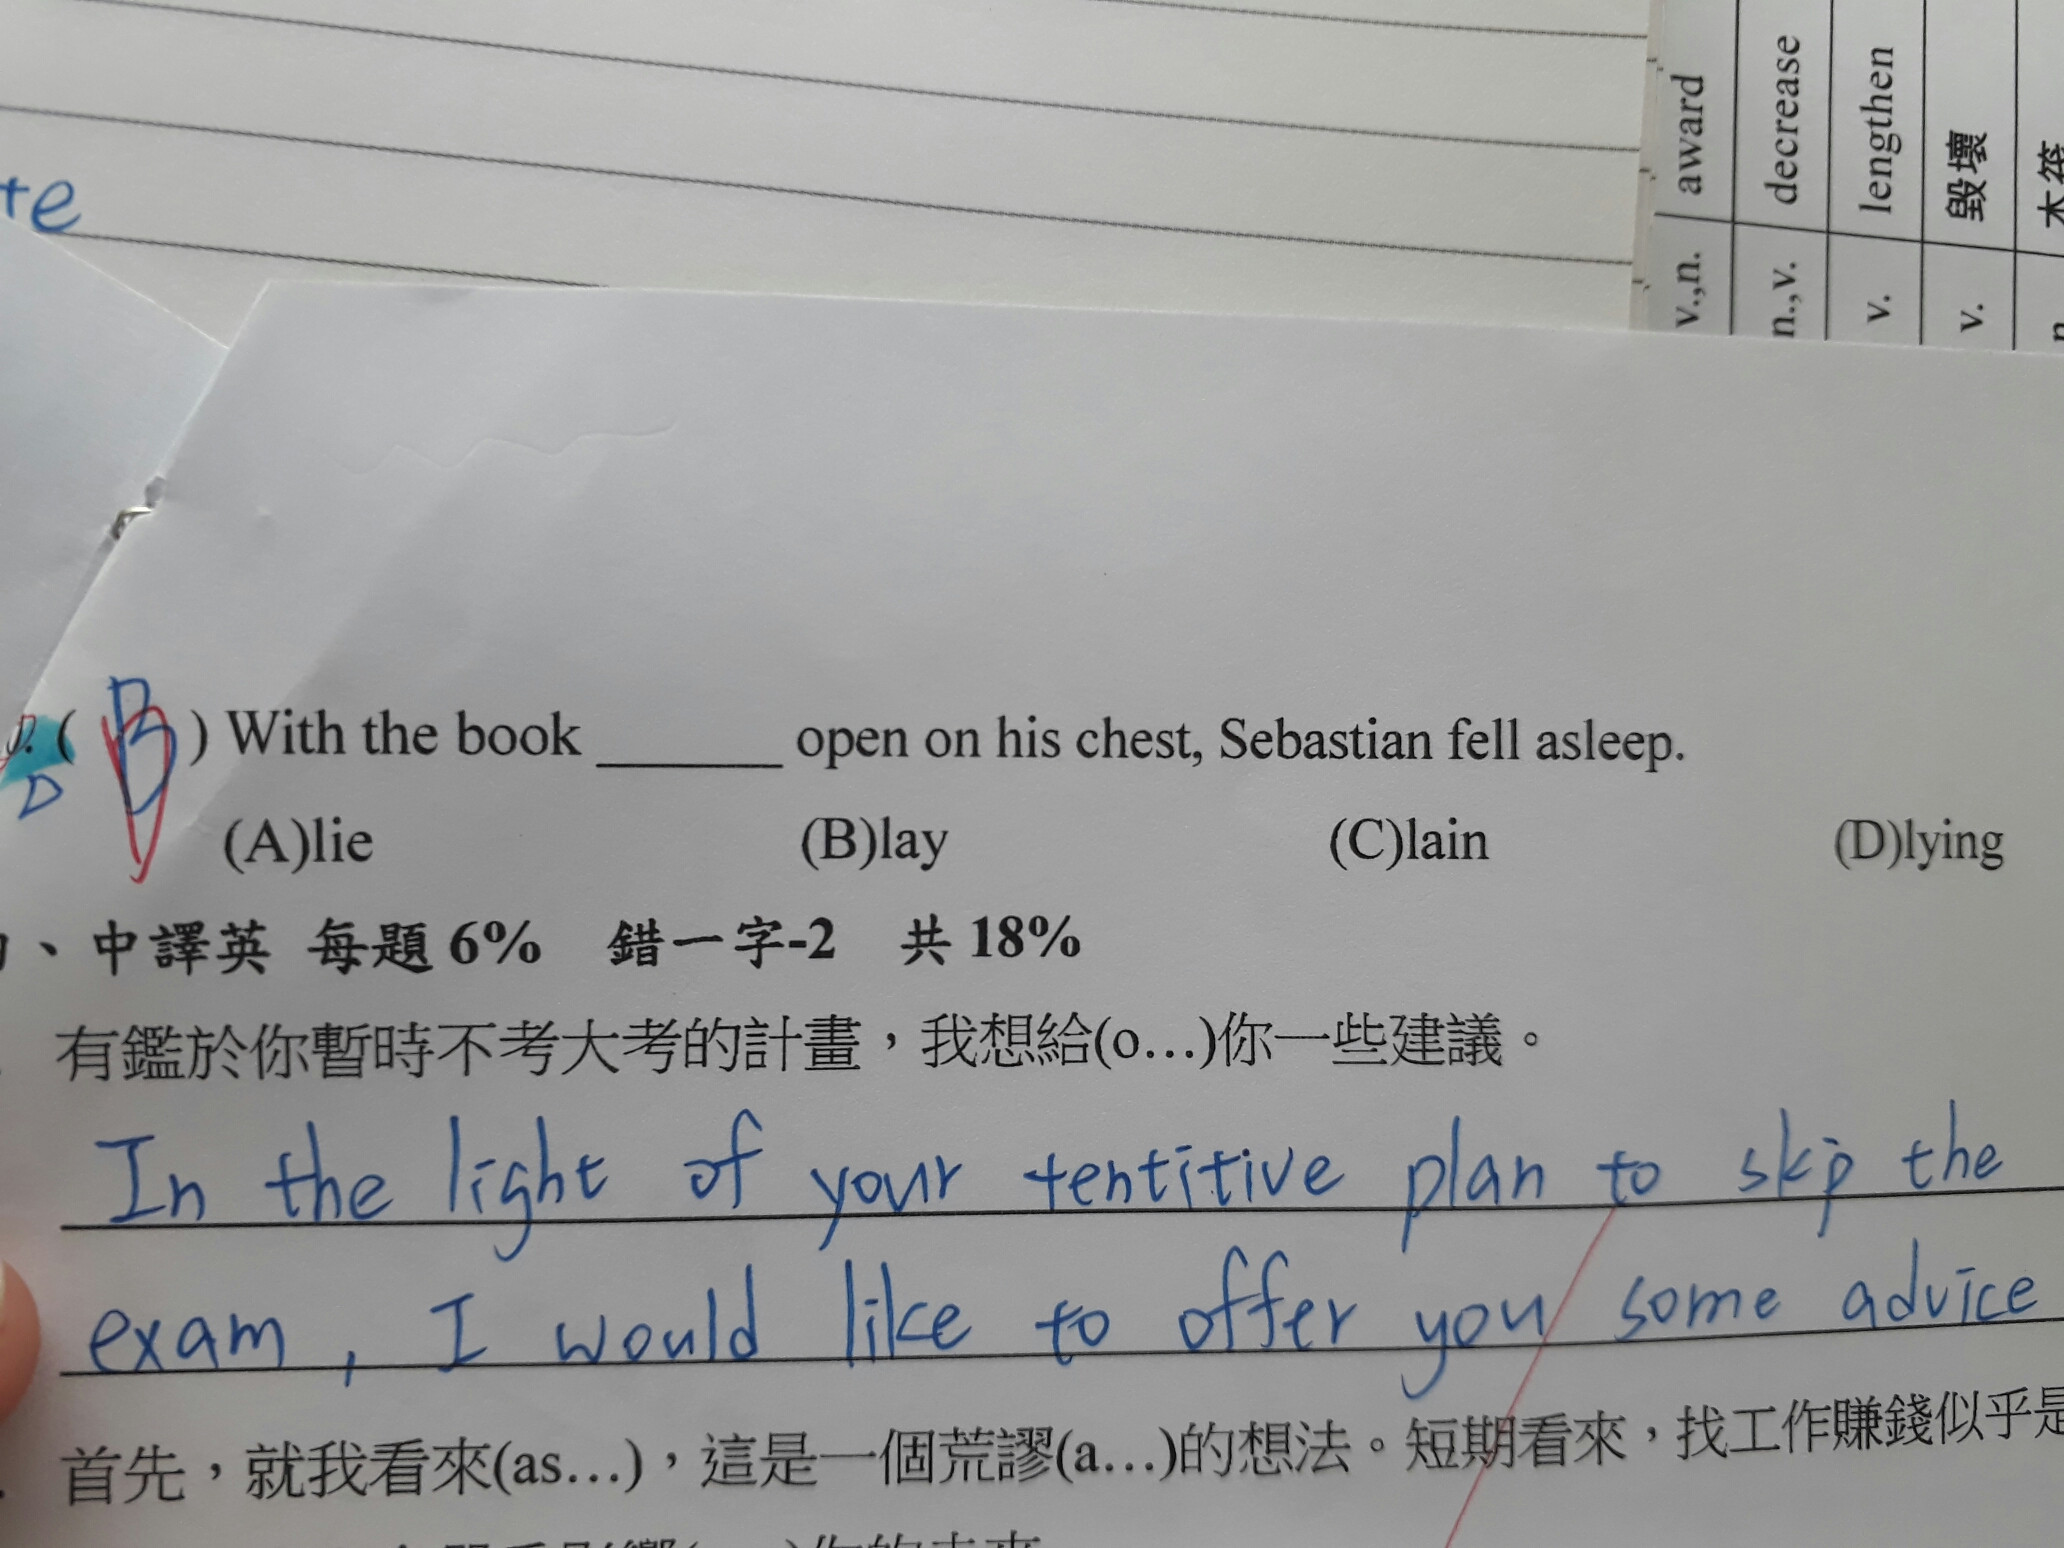 te
v.,n. award
n.,v. decrease
v. lengthen
v. 毀壞
D
( B ) With the book ______ open on his chest, Sebastian fell asleep.
(A)lie (B)lay (C)lain (D)lying
、中譯英 每題 6% 錯一字-2 共 18%
有鑑於你暫時不考大考的計畫，我想給(o…)你一些建議。
In the light of your tentitive plan to skip the
exam, I would like to offer you some advice
首先，就我看來(as…)，這是一個荒謬(a…)的想法。短期看來，找工作賺錢似乎是